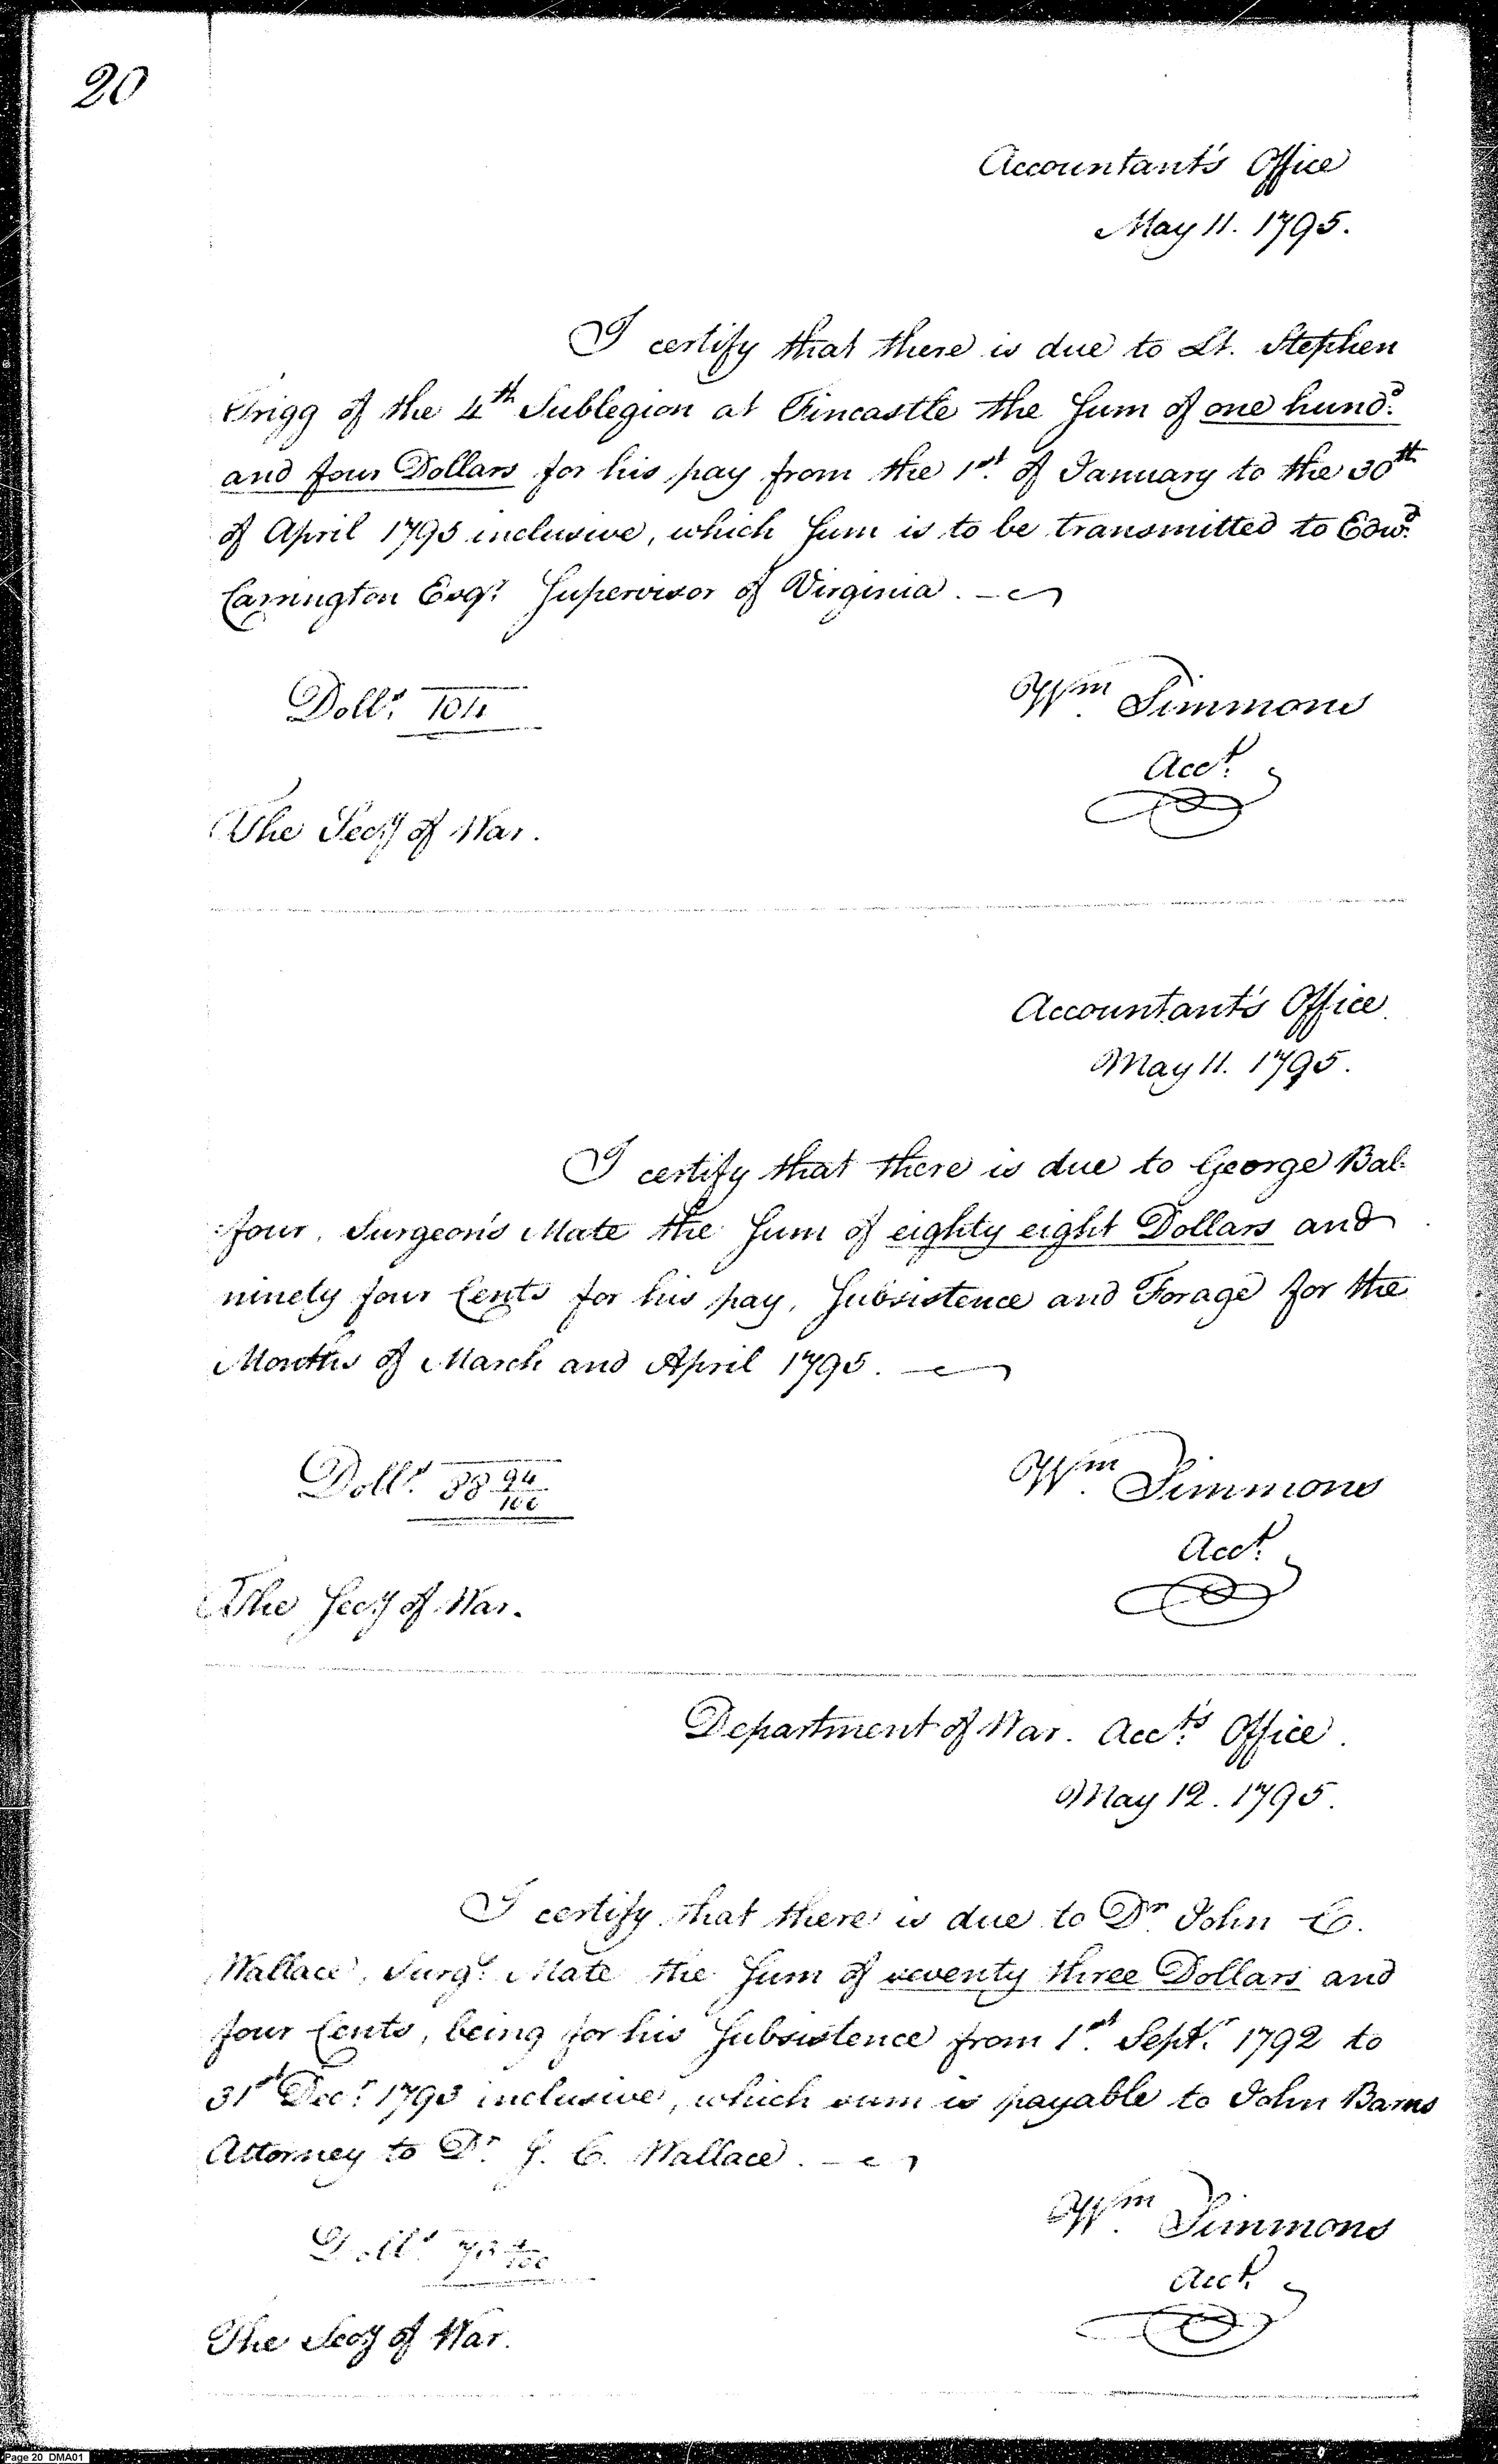 20
Accountant's Office
May 11. 1795.
I certify that there is due to Lt. Stephen
Trigg of the 4th Sublegion at Fincastle the Sum of one hund.d
and four Dollars for his pay from the 1st. of January to the 30th
of April 1795 inclusive, which Sum is to be transmitted to Edw.d
Carrington Esqr. Supervisor of Virginia.
Dolls. 104
Wm Simmons
Acct.
The Secy of War.
Accountant's Office
May 11. 1795.
I certify that there is due to George Bal-
-four, Surgeon's Mate the Sum of eighty eight Dollars and
ninety four Cents for his pay, Subsistence and Forage for the
Months of March and April 1795.
Dolls. 88 94/100
Wm. Simmons
Acct.
The Secy of War.
Department of War. Acc.ts Office.
May 12. 1795.
I certify that there is due to Dr. John C.
Wallace, Surgs. Mate the Sum of seventy three Dollars and
four Cents, being for his Subsistence from 1st. Septr. 1792 to
31st Decr. 1793 inclusive, which sum is payable to John Barns
Attorney to Dr. J. C. Wallace.
Dolls. 73 4/100
Wm. Simmons
Acct.
The Secy of War.
Page 20 DMA01